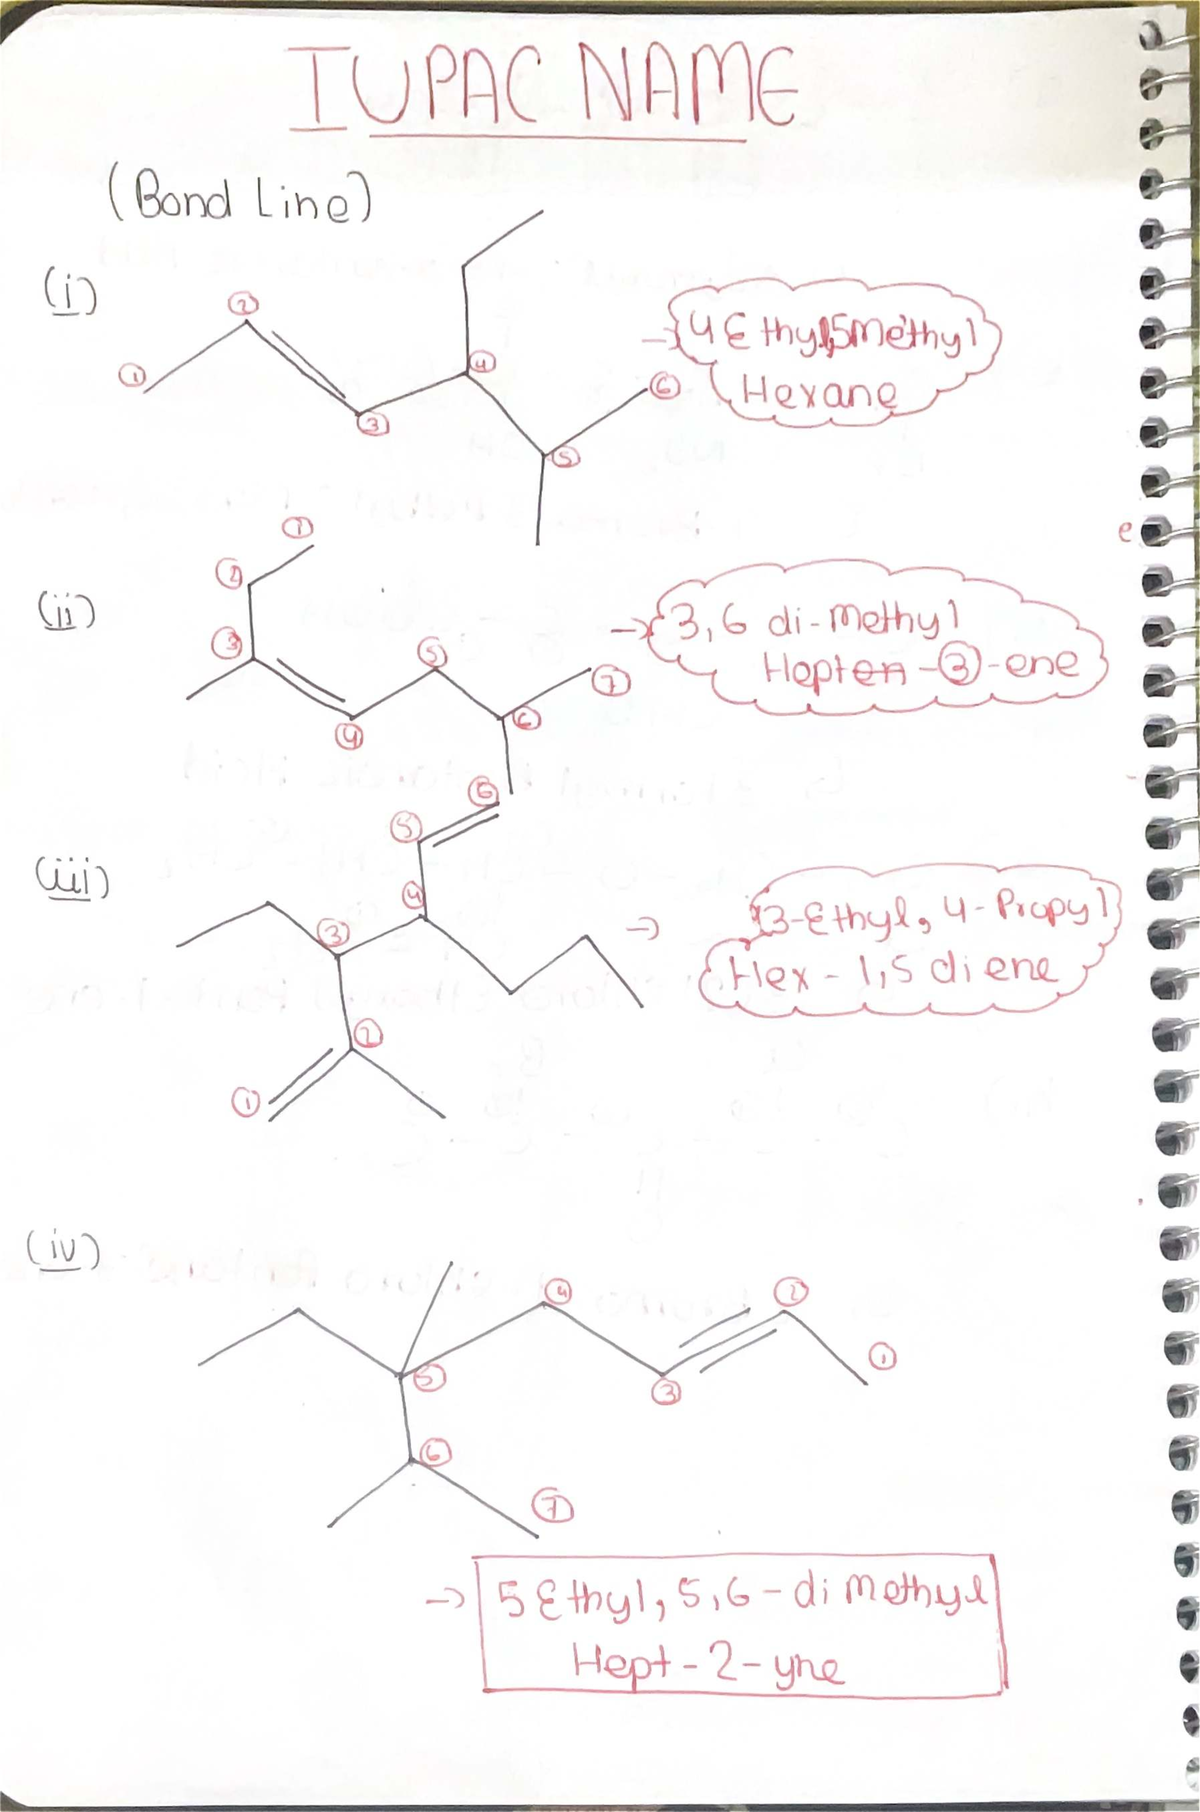 IUPAC NAME
(Bond Line)
(i)
① ② ③ ④ ⑤ ⑥
→ 4 Ethyl,5Methyl
Hexane
(ii)
① ② ③ ④ ⑤ ⑥ ⑦
→ 3,6 di-Methyl
Hepten-③-ene
e
(iii)
① ② ③ ④ ⑤ ⑥
→ 3-Ethyl, 4-Propyl
Hex-1,5 diene
(iv)
① ② ③ ④ ⑤ ⑥ ⑦
→ 5 Ethyl, 5,6-di Methyl
Hept-2-yne